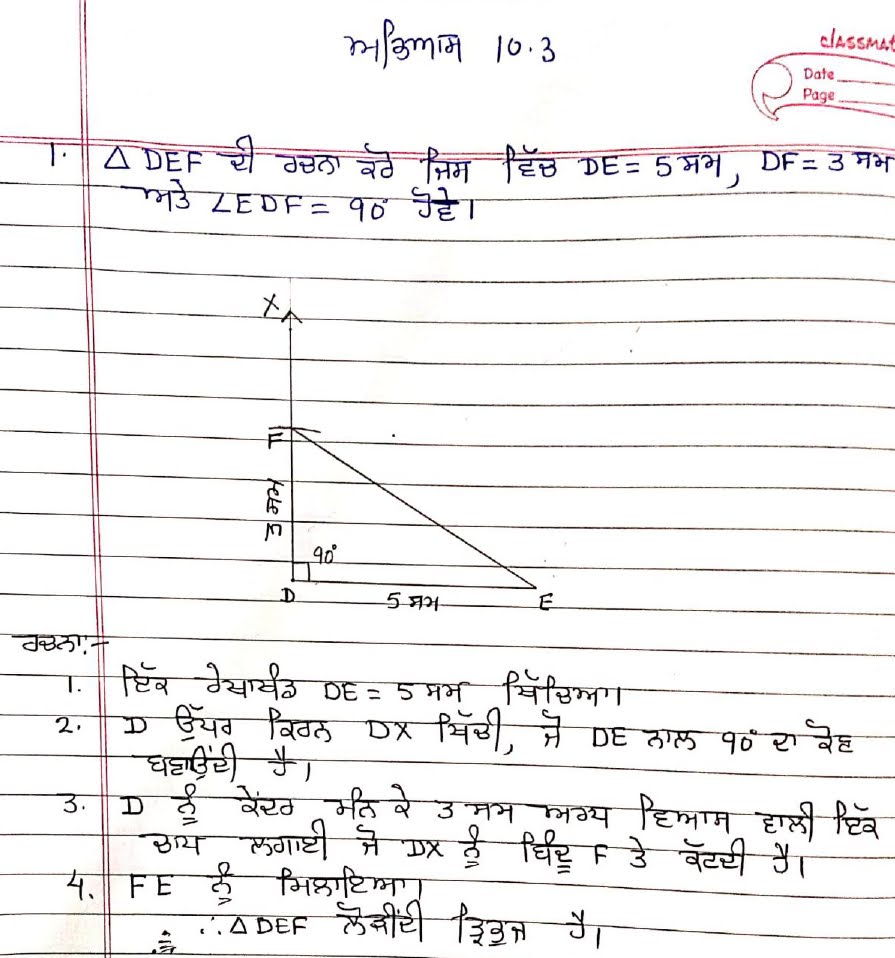 ਅਭਿਆਸ 10.3
classmat
Date
Page
1. △ DEF ਦੀ ਰਚਨਾ ਕਰੋ ਜਿਸ ਵਿੱਚ DE = 5 ਸਮ, DF = 3 ਸਮ
ਅਤੇ ∠EDF = 90° ਹੋਵੇ।
X
F
3 ਸਮ
90°
D
5 ਸਮ
E
ਰਚਨਾ:-
1. ਇੱਕ ਰੇਖਾਖੰਡ DE = 5 ਸਮ ਖਿੱਚਿਆ।
2. D ਉੱਪਰ ਕਿਰਨ DX ਖਿੱਚੀ, ਜੋ DE ਨਾਲ 90° ਦਾ ਕੋਣ
ਬਣਾਉਂਦੀ ਹੈ।
3. D ਨੂੰ ਕੇਂਦਰ ਮੰਨ ਕੇ 3 ਸਮ ਅਰਧ ਵਿਆਸ ਵਾਲੀ ਇੱਕ
ਚਾਪ ਲਗਾਈ ਜੋ DX ਨੂੰ ਬਿੰਦੂ F ਤੇ ਕੱਟਦੀ ਹੈ।
4. FE ਨੂੰ ਮਿਲਾਇਆ।
∴ △DEF ਲੋੜੀਂਦੀ ਤ੍ਰਿਭੁਜ ਹੈ।